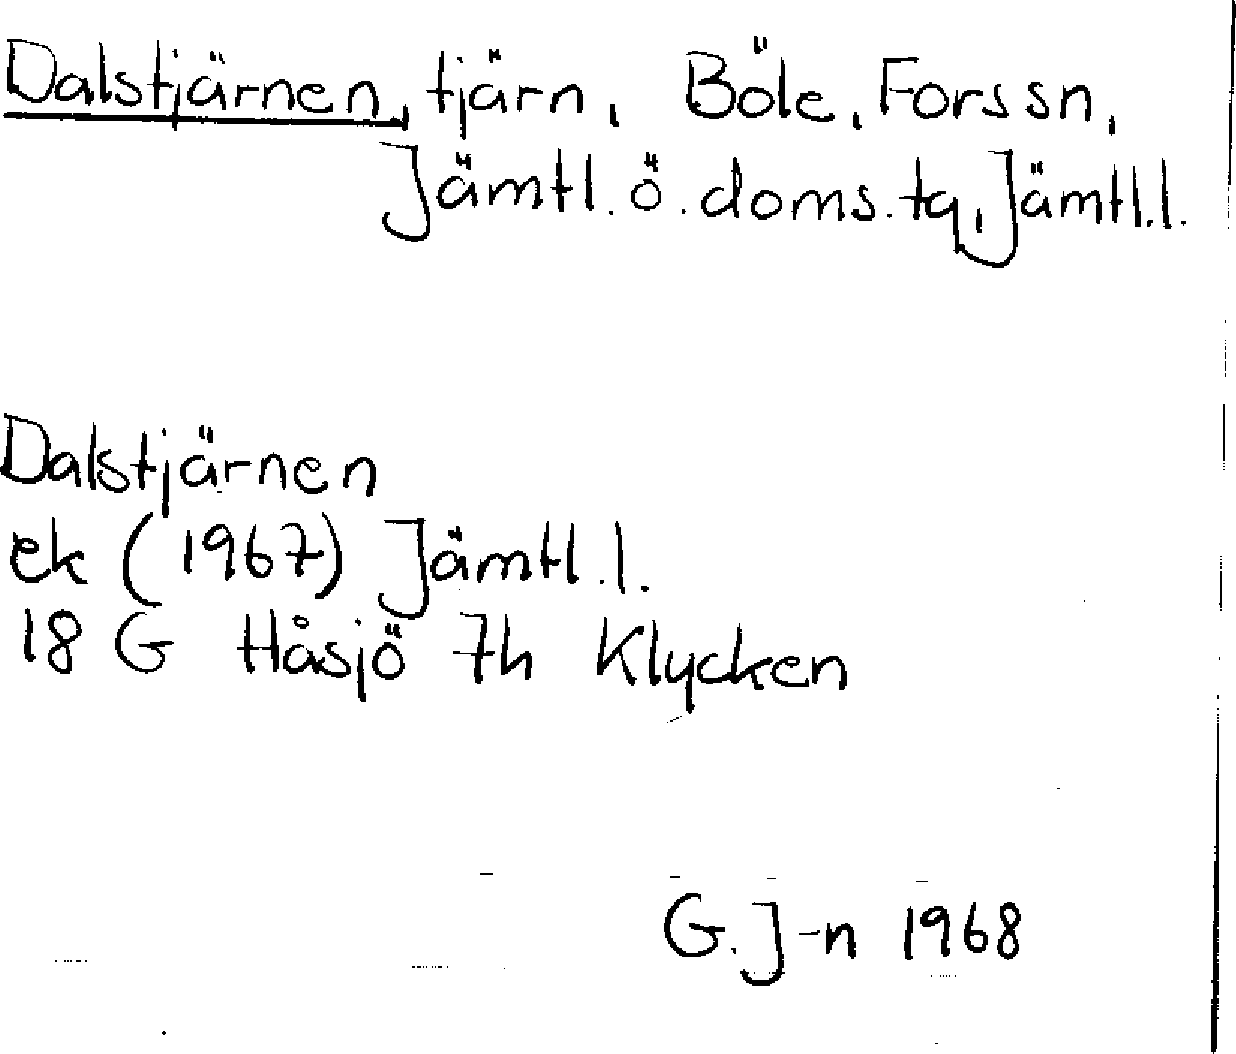 Dalstjärnen, tjärn, Böle, Fors sn,
Jämtl. ö. doms. tg, Jämtl. l.
Dalstjärnen
ek (1967) Jämtl. l.
18 G Håsjö 7h Klycken
G. J-n 1968